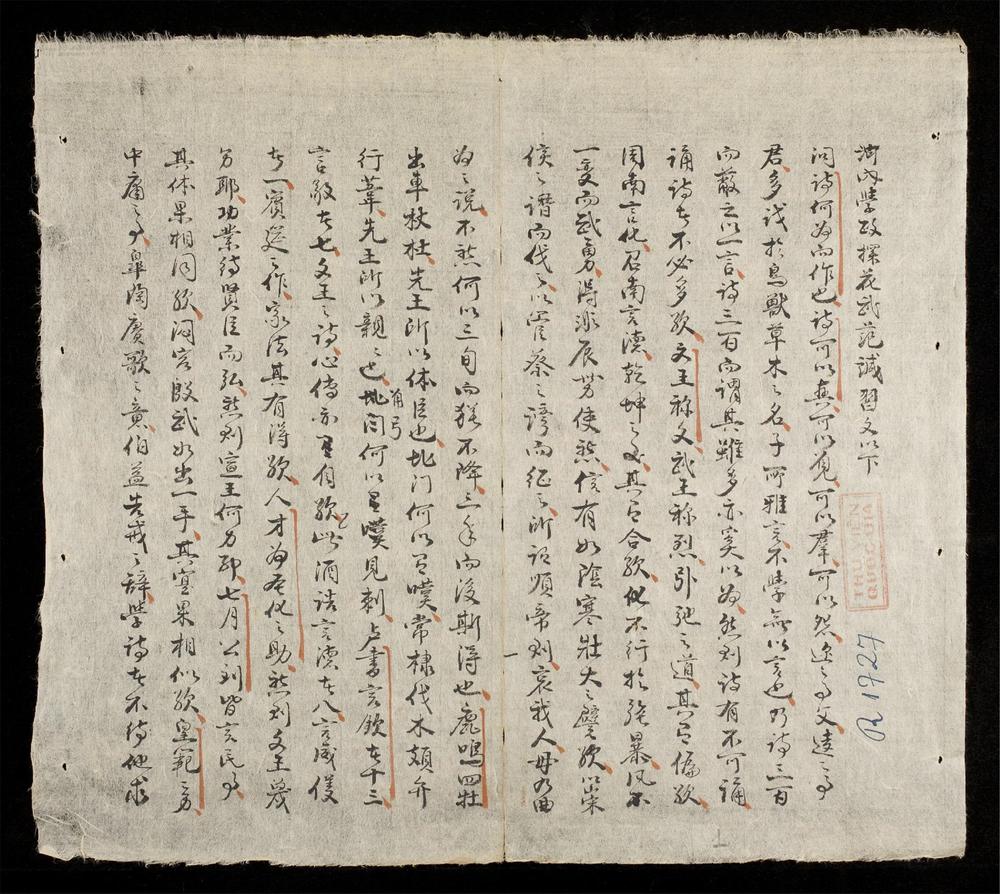 河内學政探花武范諴習文以下
問詩何為而作也詩可以興可以觀可以羣可以怨迩之事父遠之事
君多識於鳥獸草木之名子所雅言不學無以言也乃詩三百
而蔽之以一言詩三百而謂其雖多亦奚以為然則詩有不可誦
誦詩者不必多歟文王称文武王称烈引弛之道其有偏歟
周南言化召南言德乾坤之其有合歟化不行於強暴風不
一变而武勇得派辰势使然信有如陰寒壮大之譬歟以崇
侯之譖而伐之以管蔡之謗而征之所謂順帝則哀我人毋乃曲
為之說不然何以三旬而猶不降三年而後斯得也鹿鳴四牡
出車杕杜先王所以体臣也北门何以有嘆常棣伐木頍弁
行葦先王所以親之也何以有嘆見刺角弓占書言飲者十三
言敬者七文王之詩心傳亦有自歟此酒誥言德者八言威儀
者一賓筵之作家法其有得歟人才為教化之助然則文王幾
劳耶功業待賢臣而弘然則宣王何力耶七月公刘皆言民事
其体果相同歟泂宮殷武如出一手其寔果相似歟皇範言
中庸之事皐陶賡歌之意伯益告戒之辞學詩者不待他求
THƯ VIỆN
QUỐC GIA
R 1727